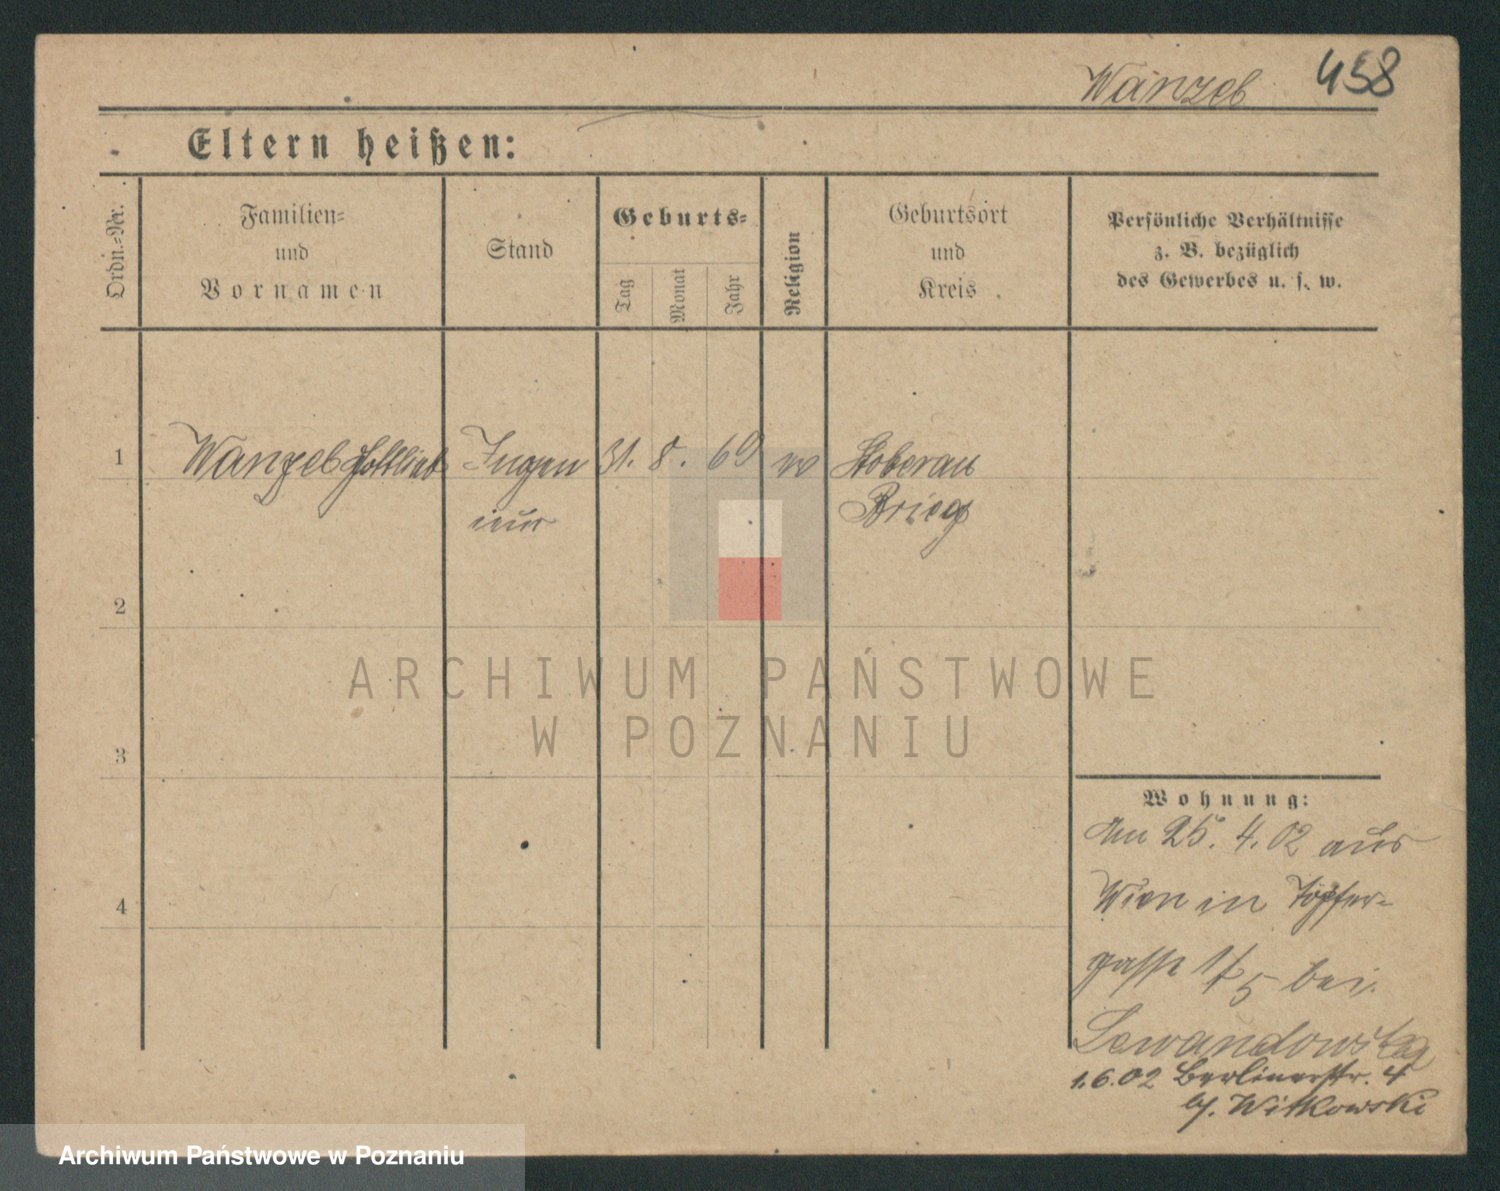 Wänzeb 458
Eltern heißen:
Ordn.=Nr.
Familien=
und
Vornamen
Stand
Geburts=
Tag
Monat
Jahr
Religion
Geburtsort
und
Kreis
Persönliche Verhältnisse
z. B. bezüglich
des Gewerbes u. s. w.
1 Wanzeb Gottlieb Ingen 31. 8. 69 Stoberau
ieur Brieg
2
ARCHIWUM PAŃSTWOWE
W POZNANIU
3
Wohnung:
Am 25. 4. 02 aus
Wien in Töpfer-
4
gasse 1/5 bei
Lewandowska
1.6.02 Berlinerstr. 4
b/. Witkowski
Archiwum Państwowe w Poznaniu